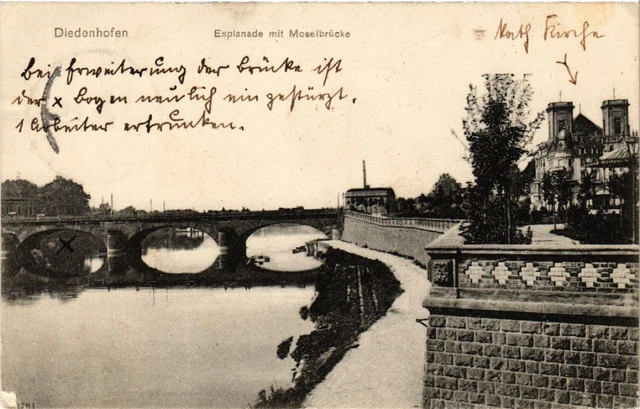 Diedenhofen
Esplanade mit Moselbrücke
Kath Kirche
Bei Erweiterung der Brücke ist
der x Bogen neulich ein gestürzt.
1 Arbeiter ertrunken.
x